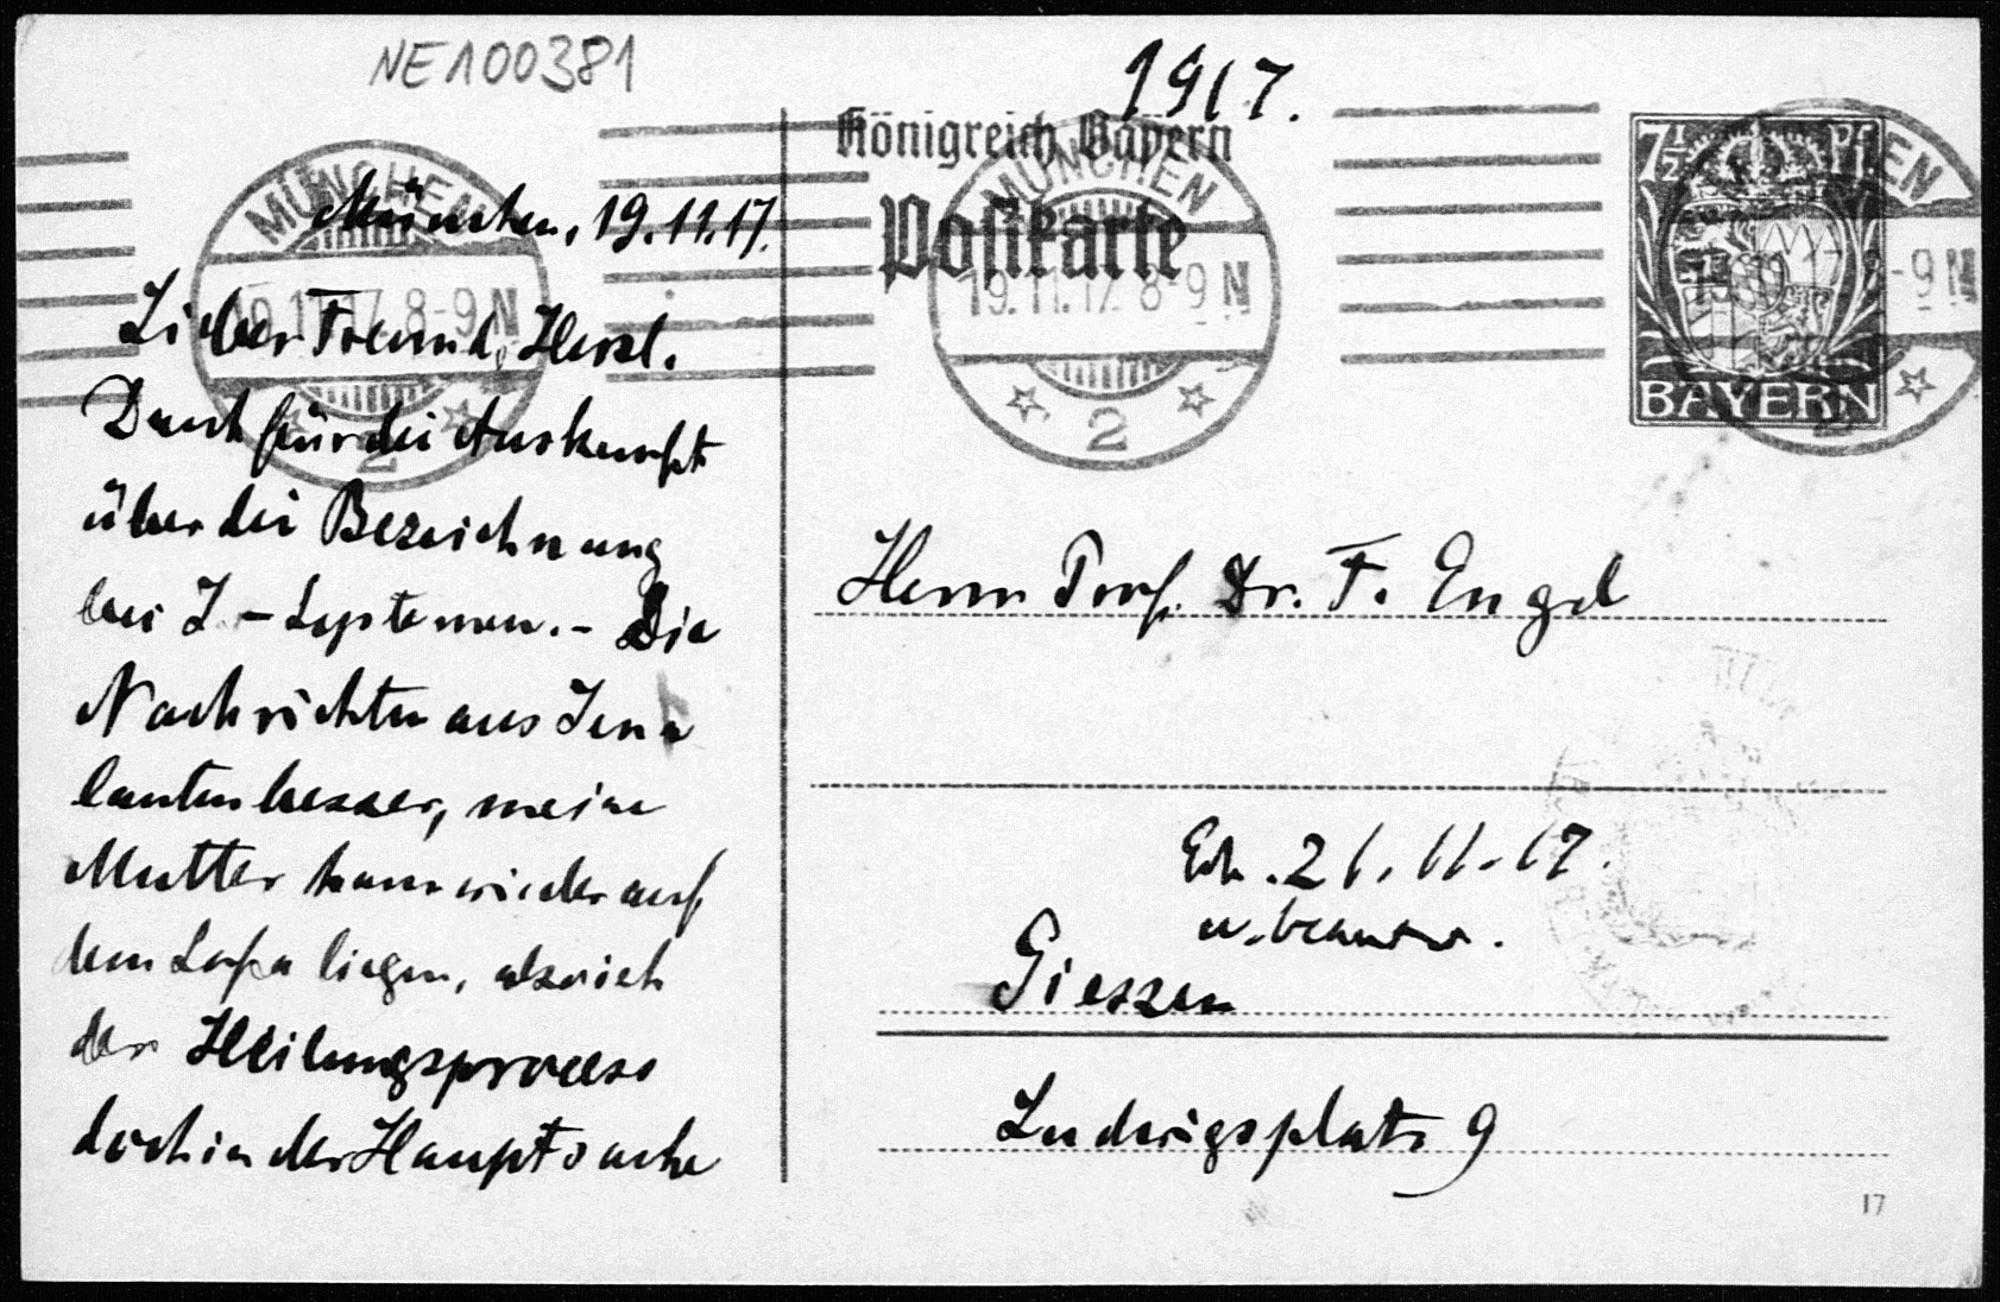 NE100381
1917.
Königreich Bayern
Postkarte
7½ Pf.
BAYERN
MÜNCHEN
19.11.17. 8-9 N
2
MÜNCHEN
19.11.17. 8-9 N
2
München, 19.11.17.
Lieber Freund, Herzl.
Dank für die Auskunft
über die Bezeichnung
bei J-Septemen. - Die
Nachrichten aus Jena
lauten besser, meine
Mutter kann wieder auf
dem Sofa liegen, also ist
der Heilungsprocess
doch in der Hauptsache
Herrn Prof. Dr. F. Engel
Erh. 21.11.17.
u. beantw.
Giessen
Ludwigsplatz 9
17